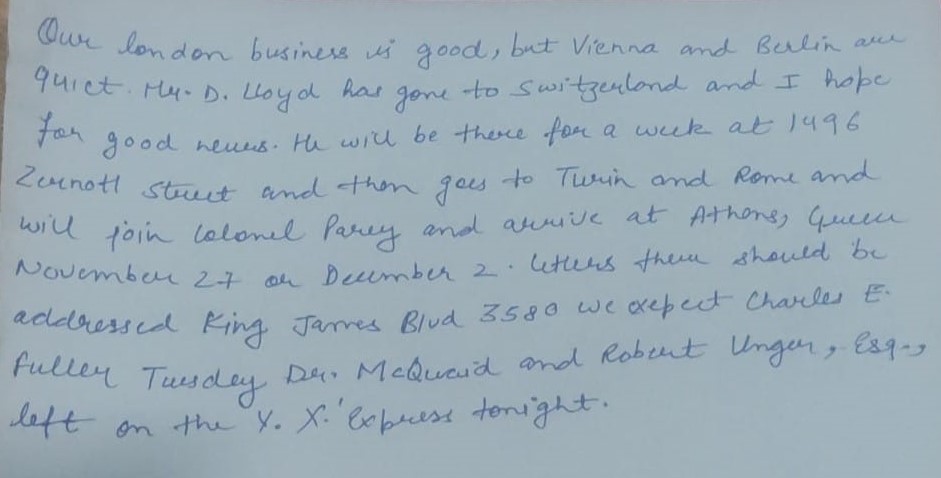 Our london business is good, but Vienna and Berlin are
quiet. Mr. D. Lloyd has gone to Switzerland and I hope
for good news. He will be there for a week at 1496
Zernott Street and then goes to Turin and Rome and
will join Colonel Parey and arrive at Athens, Greece
November 27 or December 2. Letters there should be
addressed King James Blvd 3580 we expect Charles E.
Fuller Tuesday Dr. McQuaid and Robert Unger, Esq.,
left on the 'Y. X.' Express tonight.